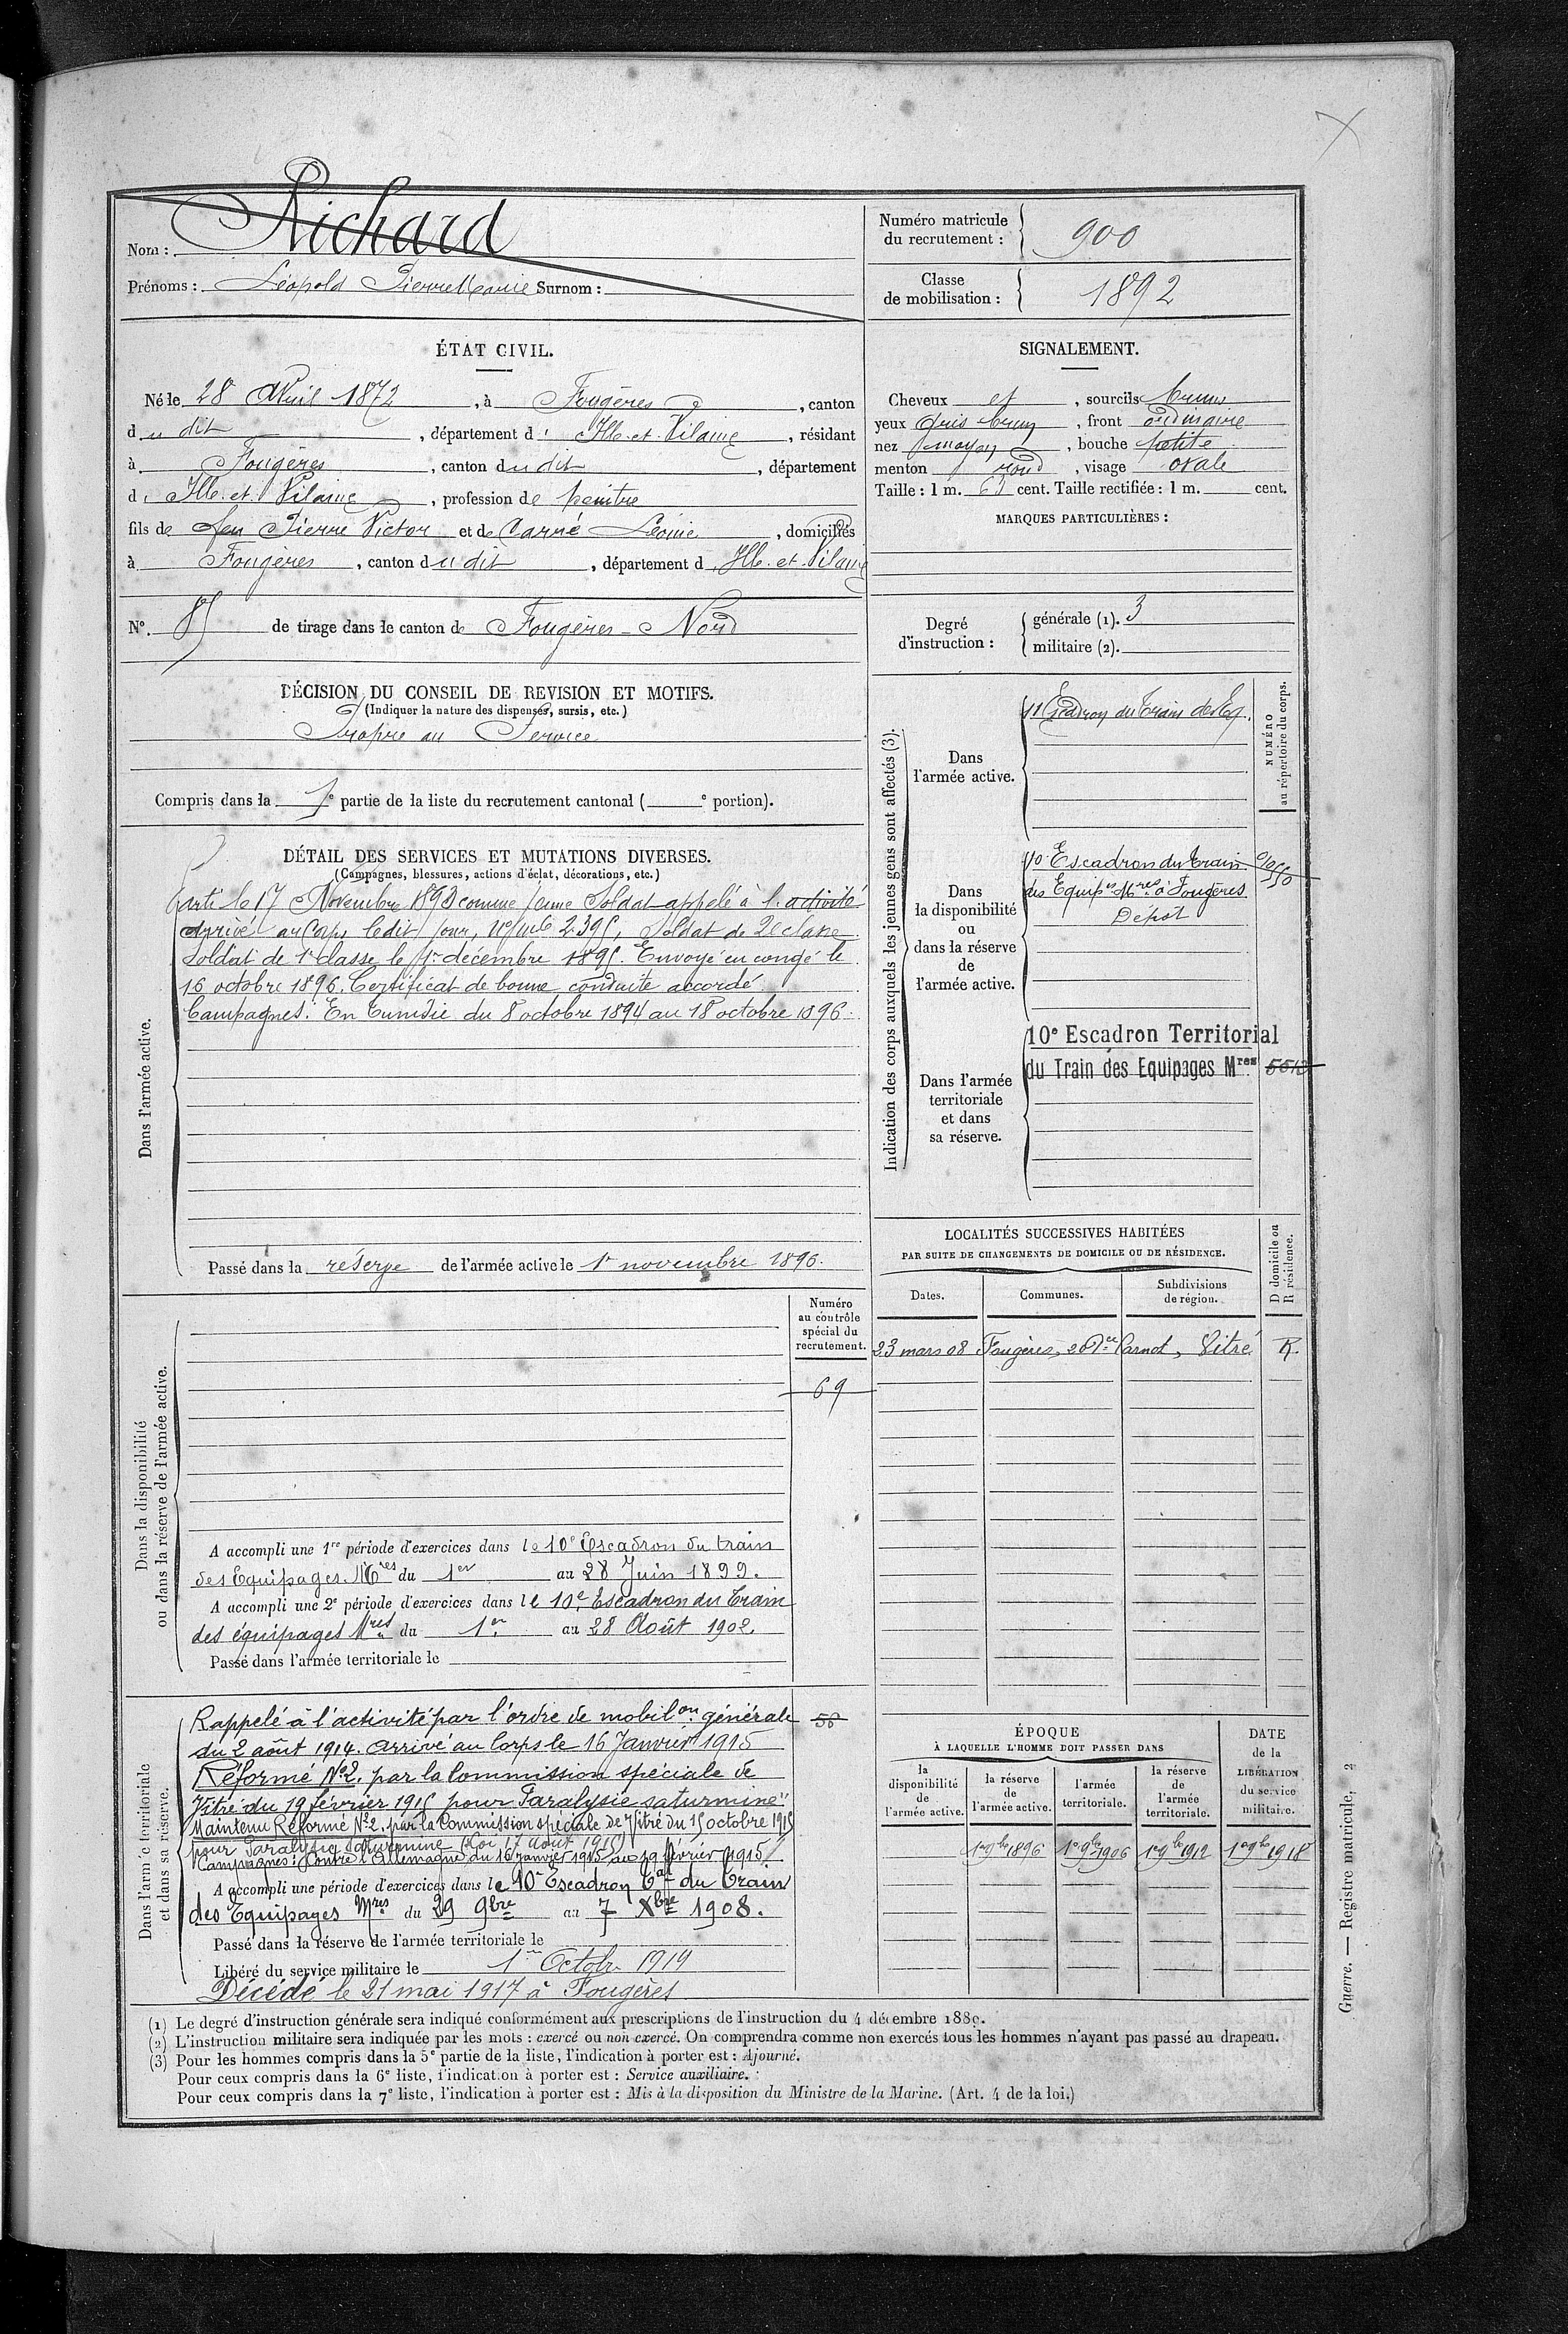 Nom : Richard
Prénoms : Léopold Pierre Marie Surnom :
Numéro matricule
du recrutement : 900
Classe
de mobilisation : 1892
ÉTAT CIVIL.
Né le 28 Avril 1872, à Fougères, canton
du dit, département d' Ille-et-Vilaine, résidant
à Fougères, canton du dit, département
d' Ille-et-Vilaine, profession de peintre
fils de feu Pierre Victor et de Carré Léonie, domiciliés
à Fougères, canton du dit, département d' Ille-et-Vilaine
N°. 85 de tirage dans le canton de Fougères-Nord
SIGNALEMENT.
Cheveux et, sourcils bruns
yeux gris brun, front ordinaire
nez moyen, bouche petite
menton rond, visage ovale
Taille : 1 m. cent. Taille rectifiée : 1 m. cent.
MARQUES PARTICULIÈRES :
Degré
d'instruction :
générale (1). 3
militaire (2).
DÉCISION DU CONSEIL DE REVISION ET MOTIFS.
(Indiquer la nature des dispenses, sursis, etc.)
Propre au Service
Compris dans la 1e partie de la liste du recrutement cantonal ( e portion).
DÉTAIL DES SERVICES ET MUTATIONS DIVERSES.
(Campagnes, blessures, actions d'éclat, décorations, etc.)
Dans l'armée active.
Parti le 17 Novembre 1893 comme jeune Soldat appelé à l'activité
Arrivé au Corps ledit jour, no mle 2.395, Soldat de 2e classe
Soldat de 1e classe le 1er décembre 1895. Envoyé en congé le
16 octobre 1896. Certificat de bonne conduite accordé
Campagnes : En Tunisie du 8 octobre 1894 au 18 octobre 1896.
Passé dans la réserve de l'armée active le 1er novembre 1896.
Indication des corps auxquels les jeunes gens sont affectés (3).
NUMÉRO
au répertoire du corps.
Dans
l'armée active.
11 Escadron du Train des Eq.
Dans
la disponibilité
ou
dans la réserve
de
l'armée active.
10e Escadron du train
des Equipes Mres à Fougères
Dépôt
Dans l'armée
territoriale
et dans
sa réserve.
10e Escadron Territorial
du Train des Equipages Mres
LOCALITÉS SUCCESSIVES HABITÉES
PAR SUITE DE CHANGEMENTS DE DOMICILE OU DE RÉSIDENCE.
D domicile ou
R résidence.
Dates. Communes. Subdivisions
de région.
23 mars 08 Fougères, 2 Pce Carnot, Vitré R.
Dans la disponibilité
ou dans la réserve de l'armée active.
Numéro
au contrôle
spécial du
recrutement.
69
A accompli une 1re période d'exercices dans le 10e Escadron du train
des Equipages Mres du 1er au 28 Juin 1899.
A accompli une 2e période d'exercices dans le 10e Escadron du Train
des équipages Mres du 1er au 28 Août 1902.
Passé dans l'armée territoriale le
Dans l'armée territoriale
et dans sa réserve.
Rappelé à l'activité par l'ordre de mobilon générale
du 2 août 1914. Arrivé au Corps le 16 Janvier 1915
Réformé No 2. par la Commission spéciale de
Vitré du 19 février 1915 pour "Paralysie saturnine"
Maintenu Réformé No 2. par la Commission spéciale de Vitré du 15 octobre 1915
pour Paralysie saturnine (Loi 17 août 1915)
Campagnes : Contre l'Allemagne du 16 janvier 1915 au 19 février 1915
A accompli une période d'exercices dans le 10e Escadron Tal du Train
des Equipages Mres du 29 9bre au 7 Xbre 1908.
Passé dans la réserve de l'armée territoriale le
Libéré du service militaire le 1er Octobre 1919
Décédé le 21 mai 1917 à Fougères
ÉPOQUE
À LAQUELLE L'HOMME DOIT PASSER DANS
la
disponibilité
de
l'armée active.
la réserve
de
l'armée active.
l'armée
territoriale.
la réserve
de
l'armée
territoriale.
DATE
de la
LIBÉRATION
du service
militaire.
1er 9bre 1896 1er 9bre 1906 1er 9bre 1912 1er 9bre 1918
(1) Le degré d'instruction générale sera indiqué conformément aux prescriptions de l'instruction du 4 décembre 1889.
(2) L'instruction militaire sera indiquée par les mots : exercé ou non exercé. On comprendra comme non exercés tous les hommes n'ayant pas passé au drapeau.
(3) Pour les hommes compris dans la 5e partie de la liste, l'indication à porter est : Ajourné.
Pour ceux compris dans la 6e liste, l'indication à porter est : Service auxiliaire.
Pour ceux compris dans la 7e liste, l'indication à porter est : Mis à la disposition du Ministre de la Marine. (Art. 4 de la loi.)
Guerre. — Registre matricule. 2